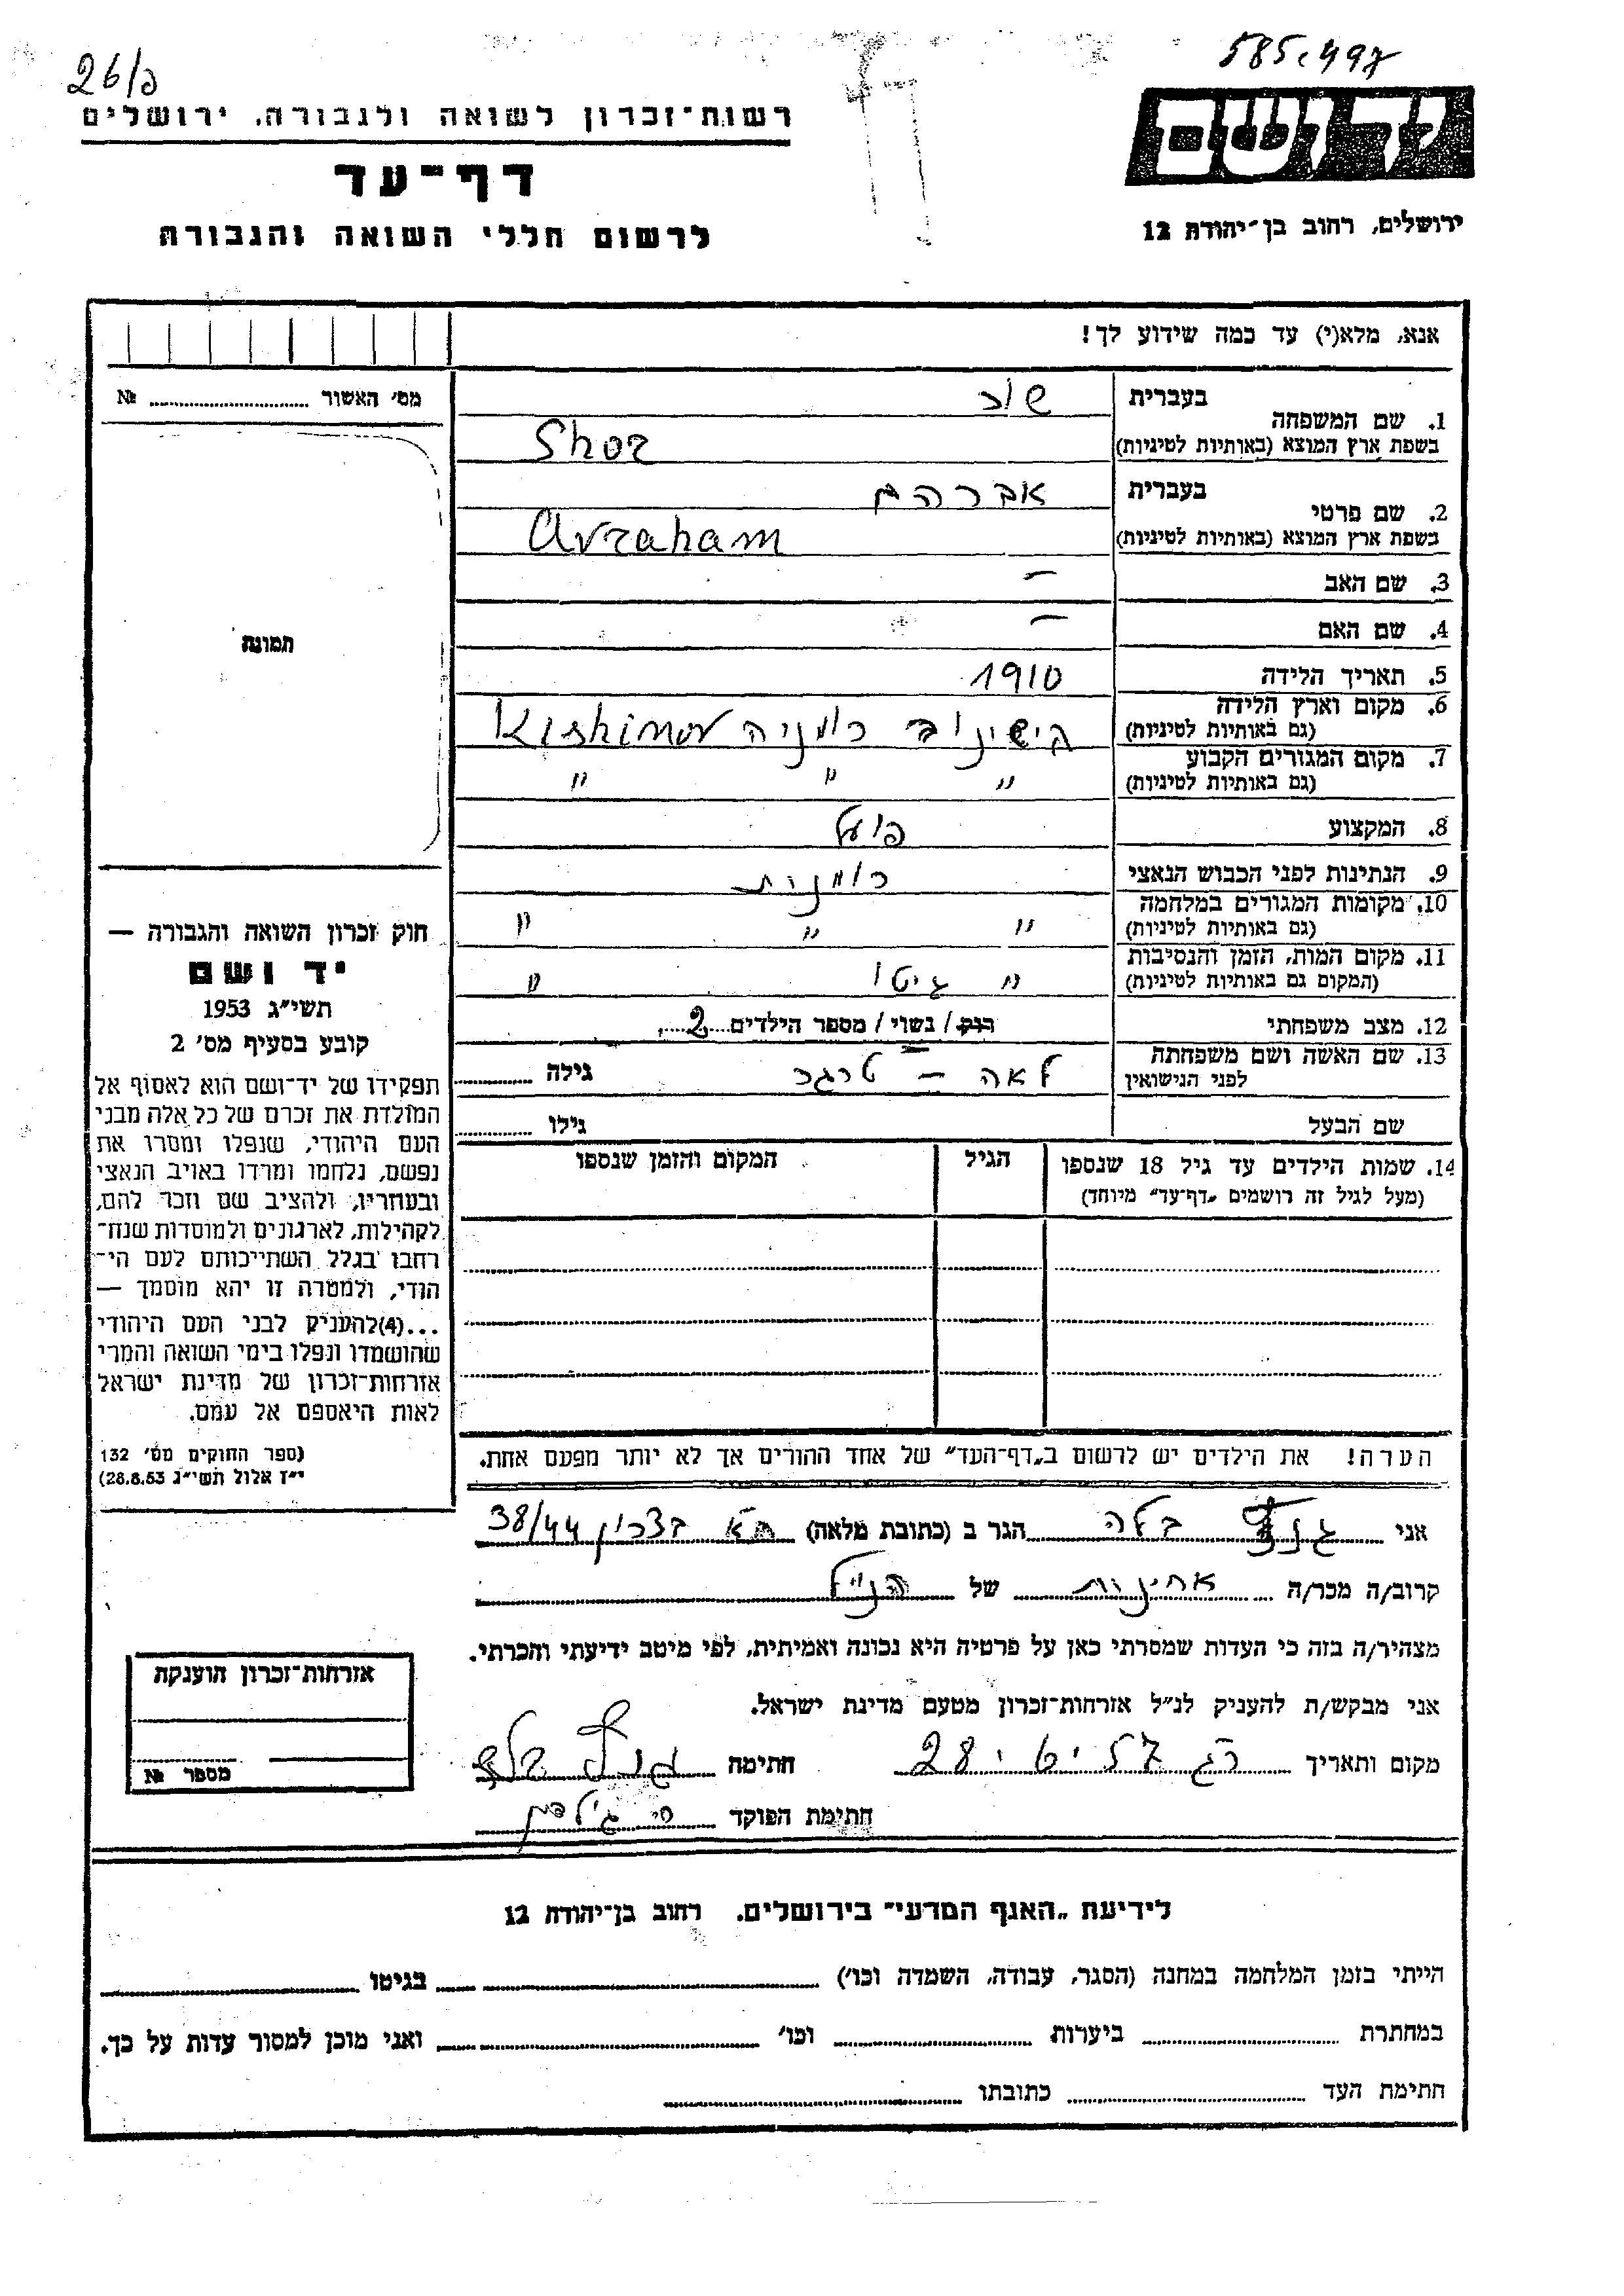 26/פ
585,497
רשות־זכרון לשואה ולגבורה, ירושלים
דף־עד
לרשום חללי השואה והגבורה
יד ושם
ירושלים, רחוב בן־יהודה 12
אנא, מלא(י) עד כמה שידוע לך!
מס' האשור № 
תמונה
1. שם המשפחה
בעברית שור
בשפת ארץ המוצא (באותיות לטיניות) Shor
2. שם פרטי
בעברית אברהם
בשפת ארץ המוצא (באותיות לטיניות) Avraham
3. שם האב –
4. שם האם –
5. תאריך הלידה 1910
6. מקום וארץ הלידה (גם באותיות לטיניות) קישינוב רומניה Kishinov
7. מקום המגורים הקבוע (גם באותיות לטיניות) " " "
8. המקצוע פועל
9. הנתינות לפני הכבוש הנאצי רומנית
10. מקומות המגורים במלחמה (גם באותיות לטיניות) " " "
11. מקום המות, הזמן והנסיבות (המקום גם באותיות לטיניות) " גיטו "
12. מצב משפחתי רווק / נשוי / מספר הילדים 2
13. שם האשה ושם משפחתה לפני הנישואין לאה – טרגר גילה
שם הבעל גילו
14. שמות הילדים עד גיל 18 שנספו (מעל לגיל זה רושמים „דף־עד" מיוחד)
הגיל
המקום והזמן שנספו
הערה! את הילדים יש לרשום ב„דף־העד" של אחד ההורים אך לא יותר מפעם אחת.
חוק זכרון השואה והגבורה —
יד ושם
תשי"ג 1953
קובע בסעיף מס' 2
תפקידו של יד־ושם הוא לאסוף אל
המולדת את זכרם של כל אלה מבני
העם היהודי, שנפלו ומסרו את
נפשם, נלחמו ומרדו באויב הנאצי
ובעוזריו, ולהציב שם וזכר להם,
לקהילות, לארגונים ולמוסדות שנח־
רבו בגלל השתייכותם לעם הי־
הודי, ולמטרה זו יהא מוסמך —
...(4)להעניק לבני העם היהודי
שהושמדו ונפלו בימי השואה והמרי
אזרחות־זכרון של מדינת ישראל
לאות היאספם אל עמם.
(ספר החוקים מס' 132
י"ז אלול תשי"ג 28.8.53)
אני בלה הגר ב (כתובת מלאה) ת"א בצרון 38/44
קרוב/ה מכר/ה אחינות של הנ"ל
מצהיר/ה בזה כי העדות שמסרתי כאן על פרטיה היא נכונה ואמיתית, לפי מיטב ידיעתי והכרתי.
אני מבקש/ת להעניק לנ"ל אזרחות־זכרון מטעם מדינת ישראל.
מקום ותאריך חתימה
חתימת הפוקד
אזרחות־זכרון הוענקה
מספר №
לידיעת „האגף המדעי" בירושלים. רחוב בן־יהודה 12
הייתי בזמן המלחמה במחנה (הסגר, עבודה, השמדה וכו') בגיטו
במחתרת ביערות וכו' ואני מוכן למסור עדות על כך.
חתימת העד כתובתו